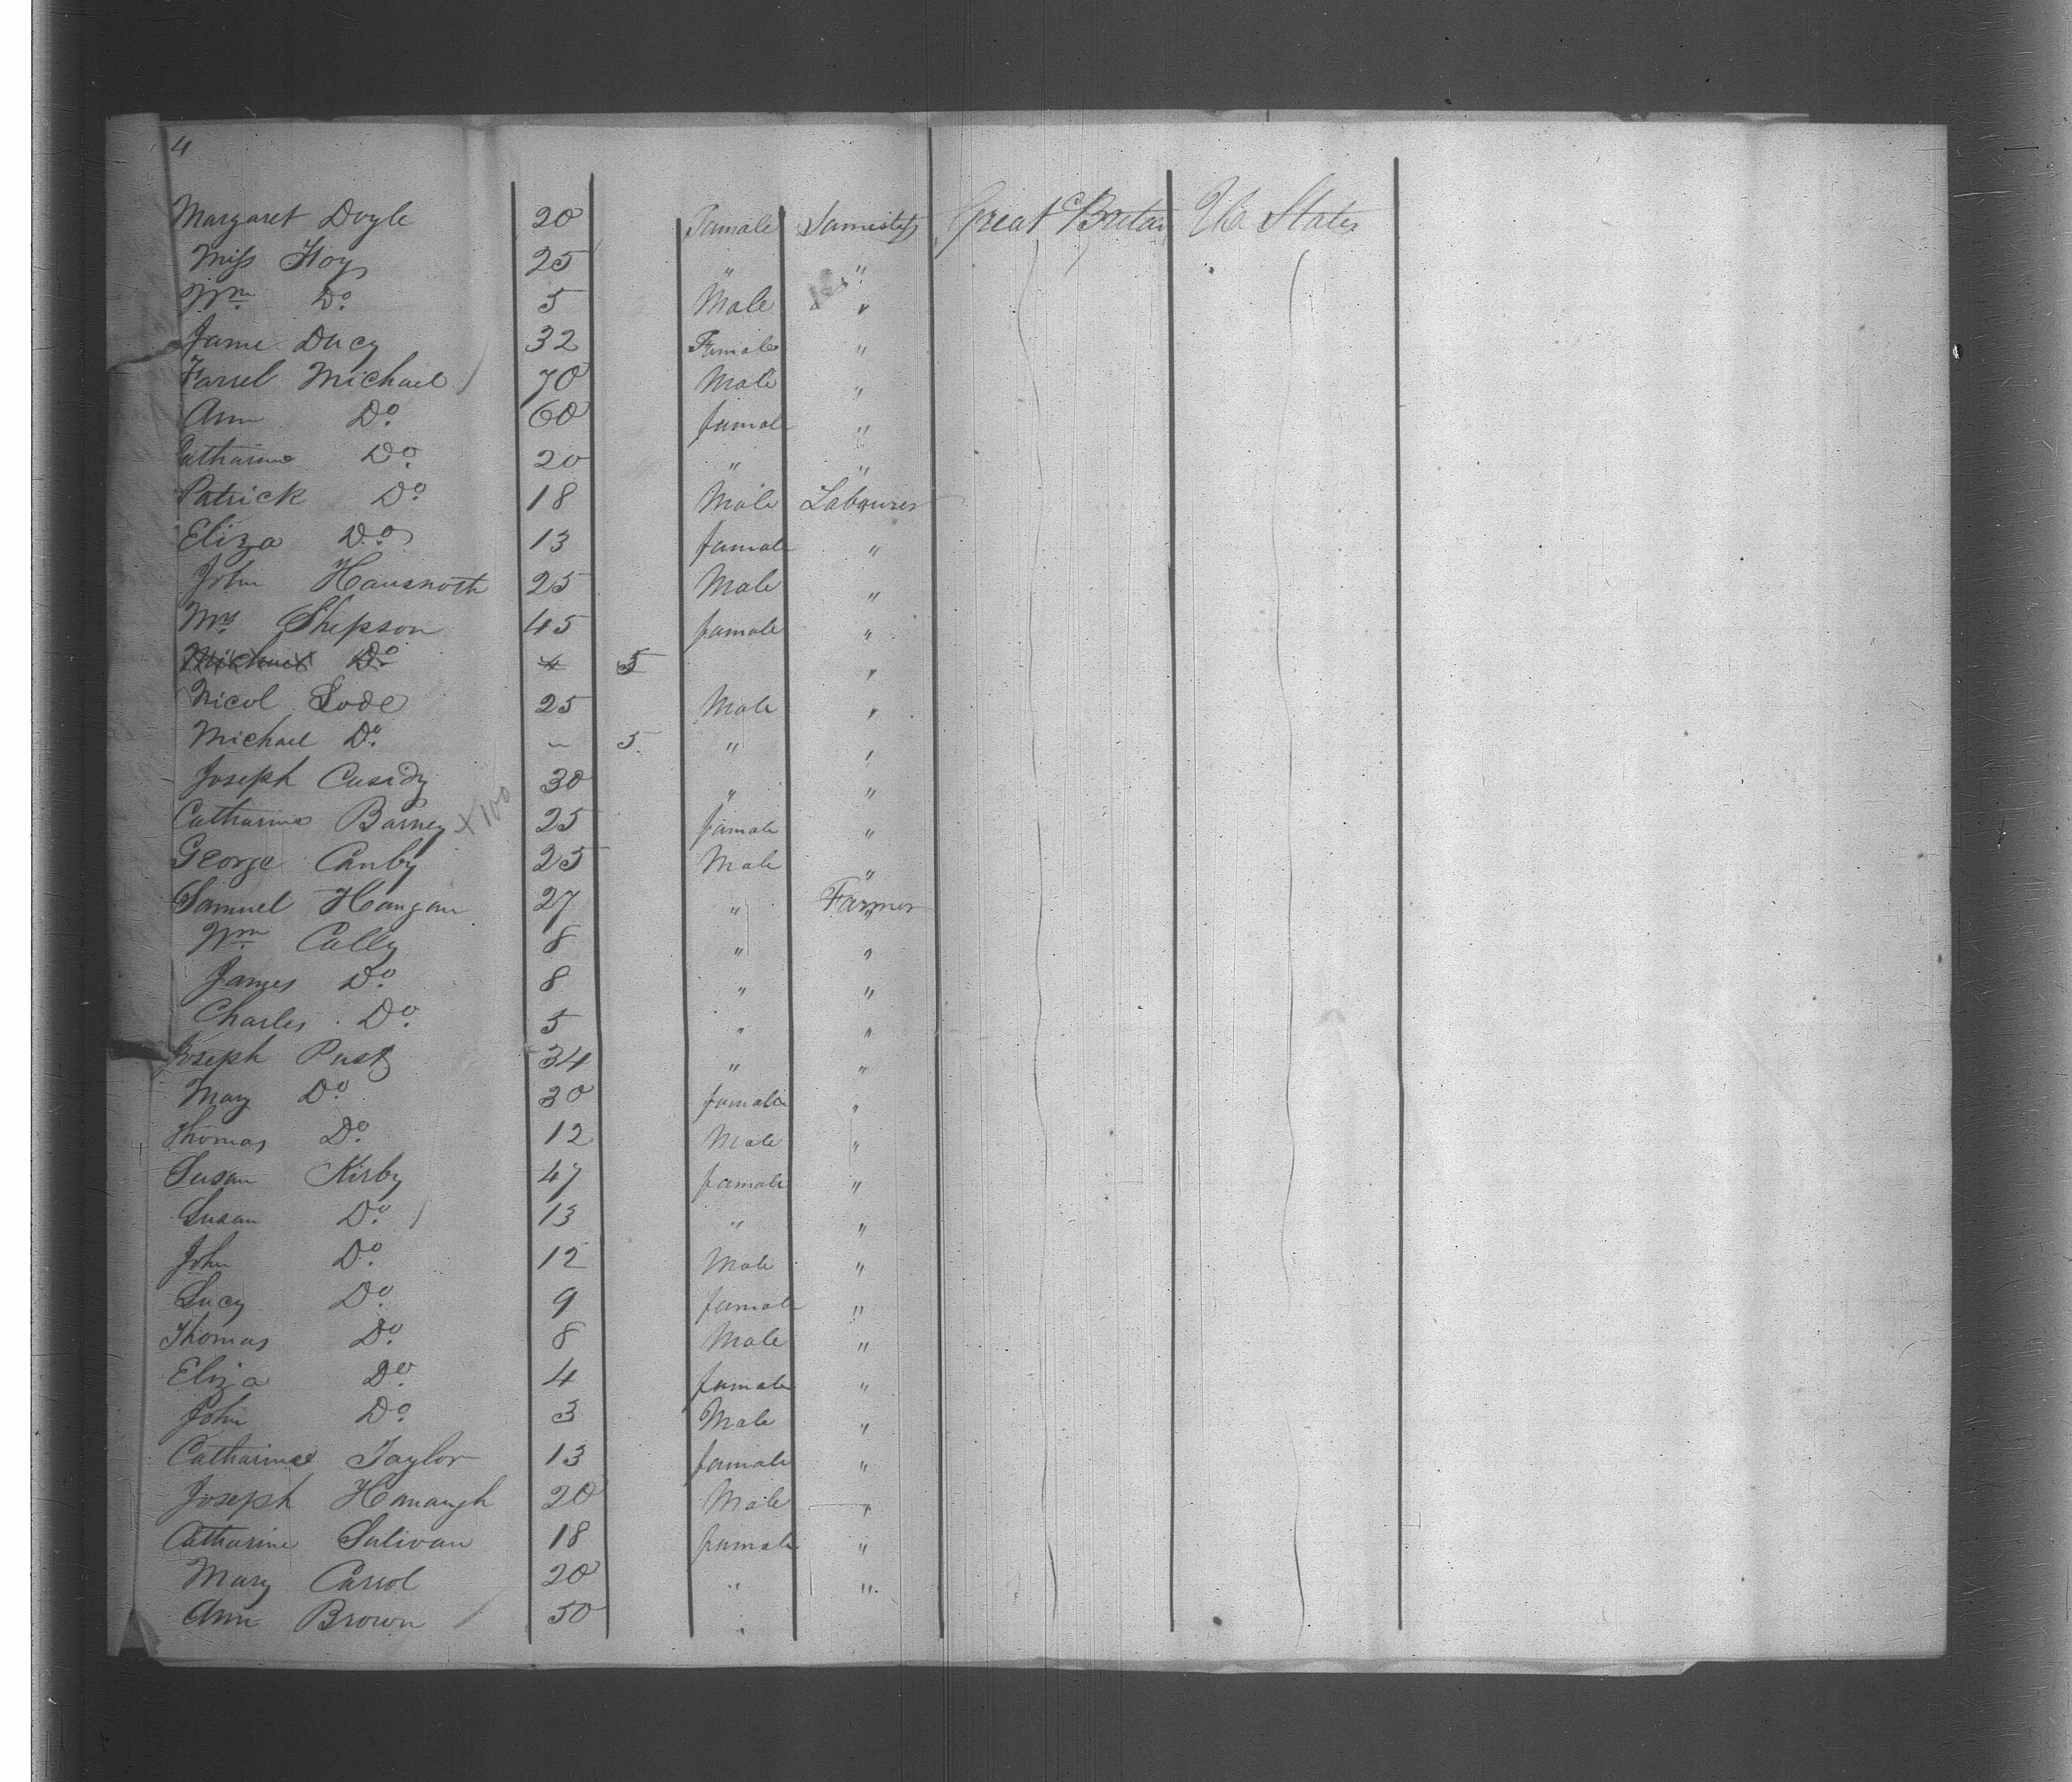 4
Margaret Doyle 20 Famale Great Britain U States
Miss Hoy 25 " "
Wm Do 5 Male "
Jame Dacy 32 Female "
Farrel Michael 70 Male "
Ann Do 60 famale "
Catharine Do 20 " "
Patrick Do 18 Male Labourer
Eliza Do 13 famale "
John 25 Male "
Mrs Shipson 45 famale "
Michael Do 5 "
Nicol Lode 25 Male "
Michael Do 5 " "
Joseph Casidy 30 " "
Catharine Barney X 100 25 famale "
George Canby 25 Male "
Samuel Hangan 27 " Farmer
Wm Cally 8 " "
James Do 8 " "
Charles Do 5 " "
Joseph 34 " "
Mary Do 30 famale "
Thomas Do 12 Male "
Susan Kirby 47 famale "
Susan Do 13 " "
John Do 12 Male "
Lucy Do 9 famale "
Thomas Do 8 Male "
Eliza Do 4 famale "
John Do 3 Male "
Catharine Taylor 13 famale "
Joseph Hanaugh 20 Male "
Catharine Sulivan 18 famale "
Mary Carrol 20 " "
Ann Brown 50 "